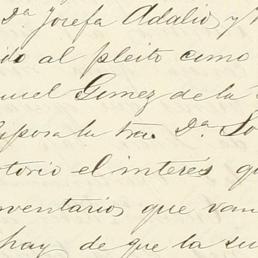 Dª Josefa Adalid, y
ido al pleito como
nuel Gomez de la
esposa la Sra. Dª So
torio el interés q
nventarios que van
hay de que la su